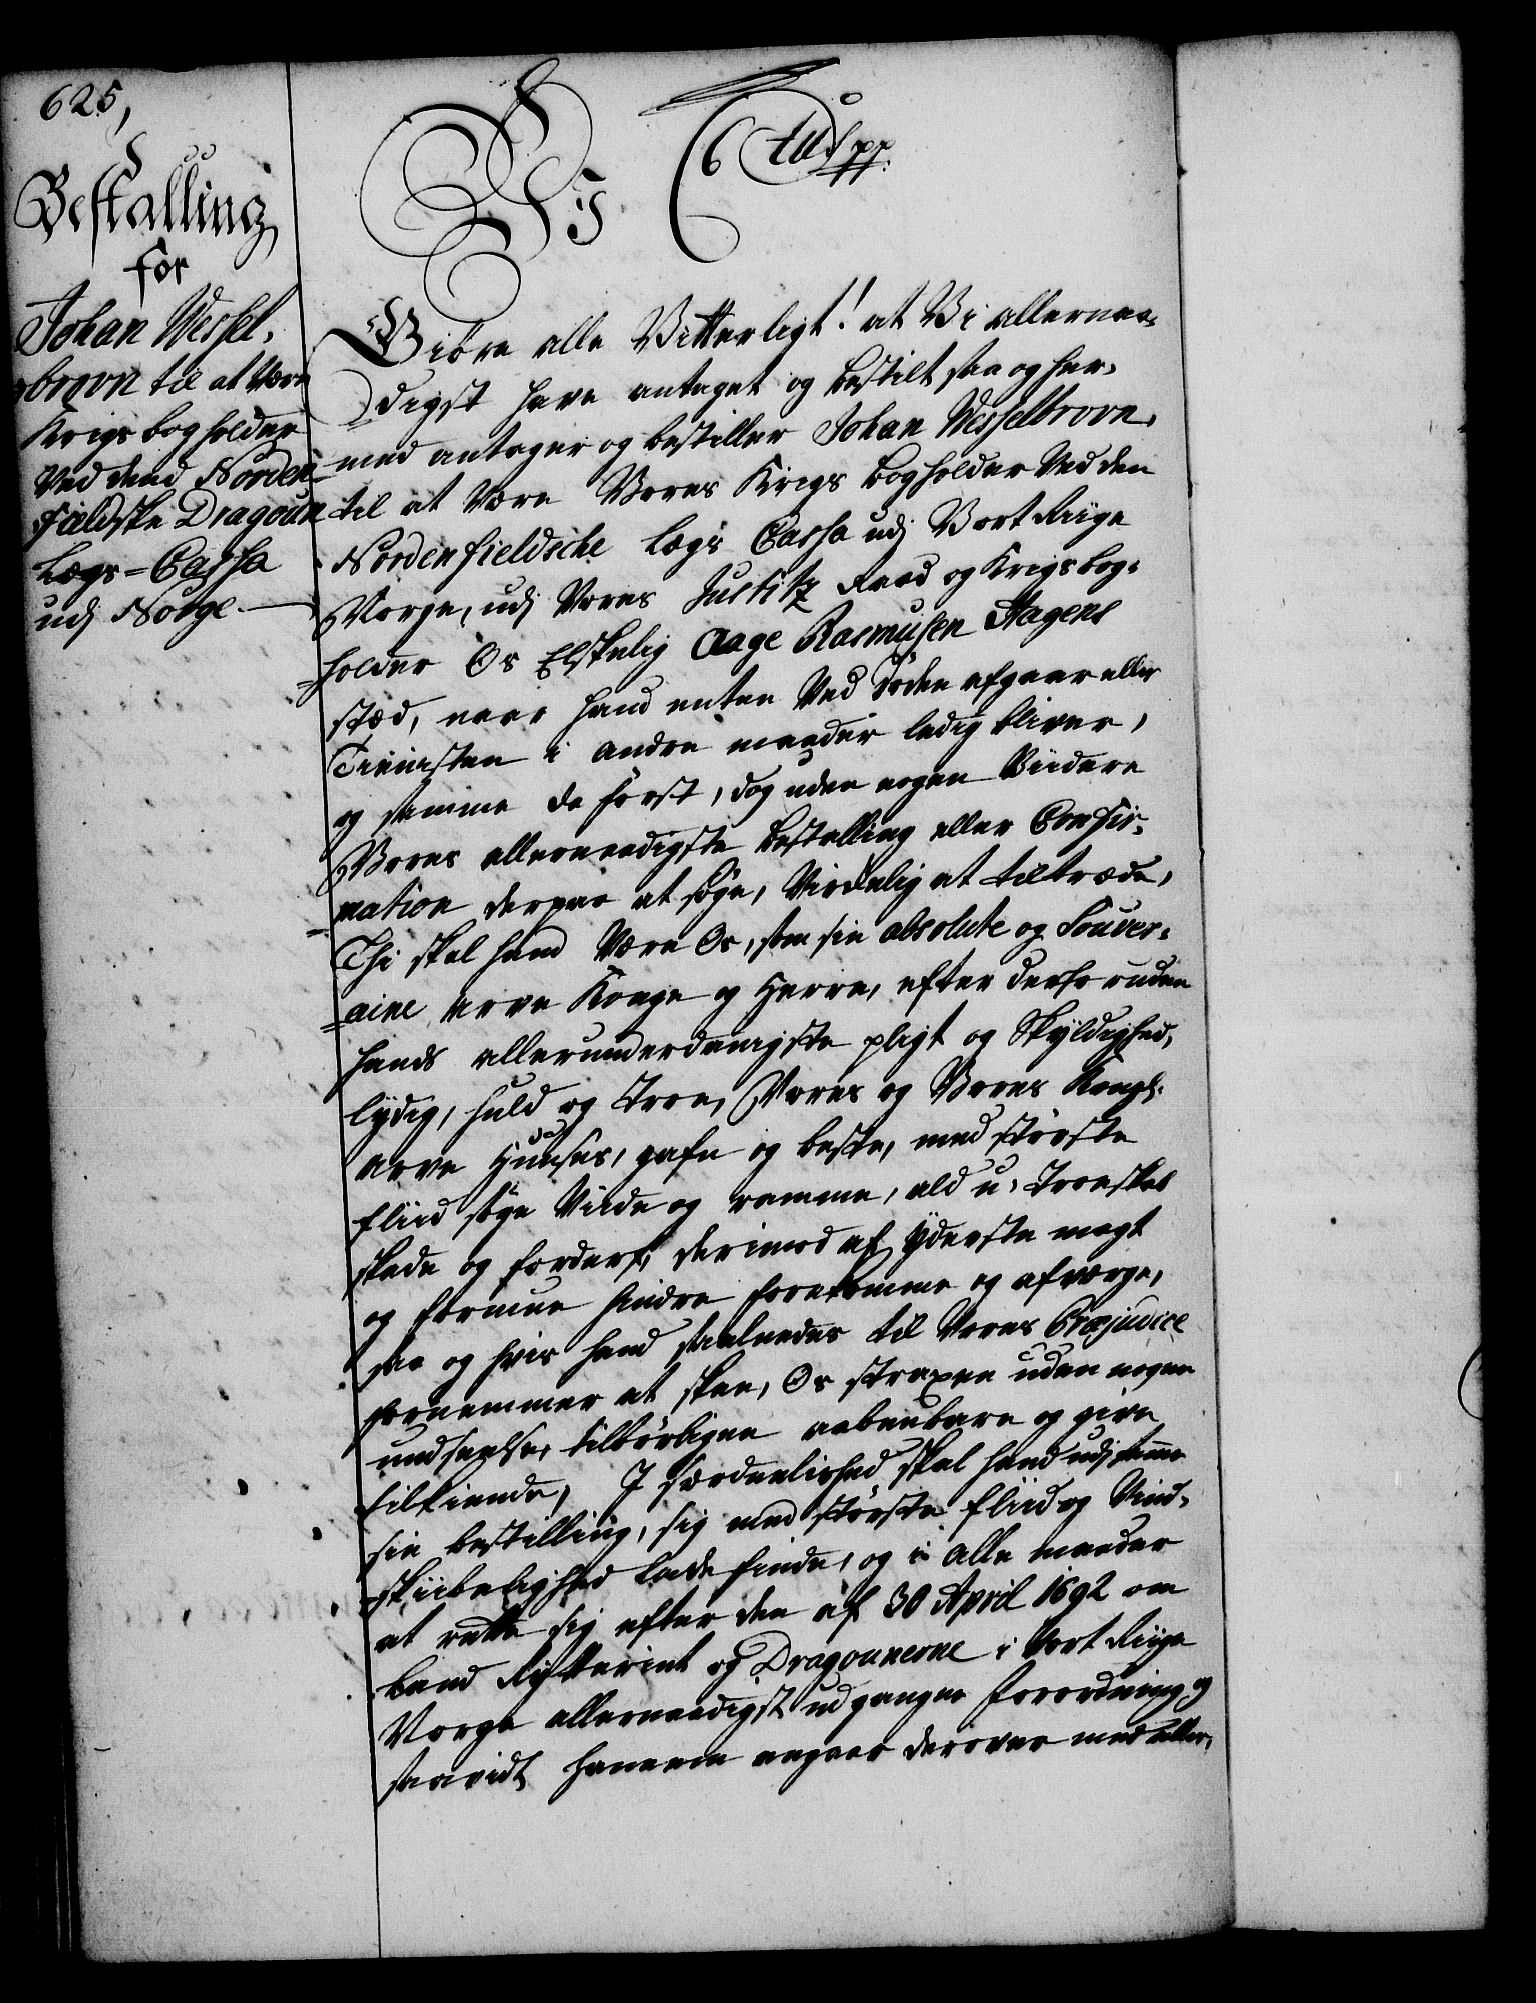 625,
Bestalling
for
Johan Wessel-
brovn til at være
Krigs bogholder
Ved dend Norden-
fieldske Dragoun
Lægs-Cassa
udj Norge.
Vi C 6 tus pp.
Giøre alle Vitterligt! at Vi allernaa-
digst have antaget og bestilt saa og her-
med antager og bestiller Johan Wesselbrovn,
til at være Vores Krigs bogholder Ved den
Nordenfieldsche Lægs Cassa udj Vort Riige
Norge, udj Vores Justitz Raad og Krigs bog-
holder Os Elskelig Aage Rasmusen Hagens
stæd, naar hand enten Ved døden afgaar eller
Tienisten i andre maader ledig bliver,
og samme da først, dog uden nogen Viidere
Vores allernaadigste bestalling eller Confir-
mation derpaa at søge, Virckelig at tiltræde,
Thi skal hand Være Os, som sin absolute og Souver-
aine Arve Konge og Herre, efter derforuden
hands allerunderdanigste pligt og Skyldighed,
lydig, huld og troe, Vores og Vores Kongl.
Arve Huuses, gafn og beste, med største
fliid søge Viide og ramme, ald u-troeskab
skade og forderf, derimod af yderste magt
og formue hindre forekomme og afværge,
saa og hvis hand saaledes til Vores Præjudice
fornemmer at skee, Os straxen uden nogen
undseelse, tilbørligen aabenbare og give
tilkiende, I særdeelished skal hand udj samme
sin bestilling, sig med største fliid og Vind-
skiibelighed lade finde, og i alle maader
at rette sig efter den af 30 April 1692 om
Land Rytteriet og Dragounerne i Vort Riige
Norge allernaadigst udgangne forordning og
saavidt hannem angaar derover med aller-